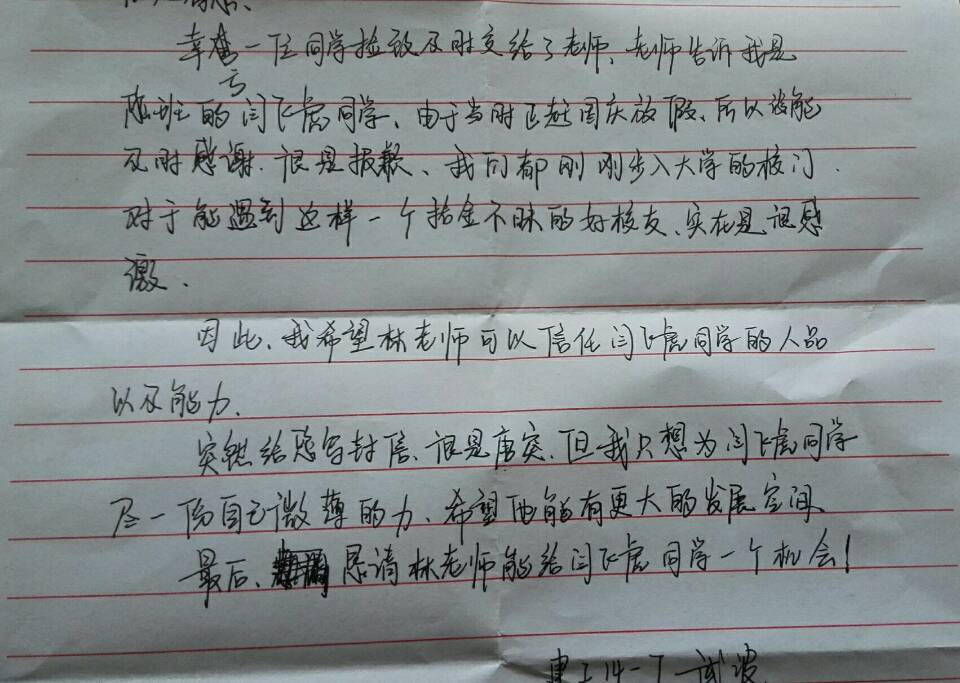 幸亏一位同学捡致及时交给了老师、老师告诉我是
您班的闫飞虎同学、由于当时正赶国庆放假、所以没能
及时感谢.很是报歉、我们都刚刚步入大学的校门.
对于能遇到这样一个拾金不昧的好校友、实在是很感
激.
因此、我希望林老师可以信任闫飞虎同学的人品
以及能力、
突然给您写封信、很是唐突、但我只想为闫飞虎同学
尽一份自己微薄的力、希望他能有更大的发展空间、
最后、恳请林老师能给闫飞虎同学一个机会!
14-